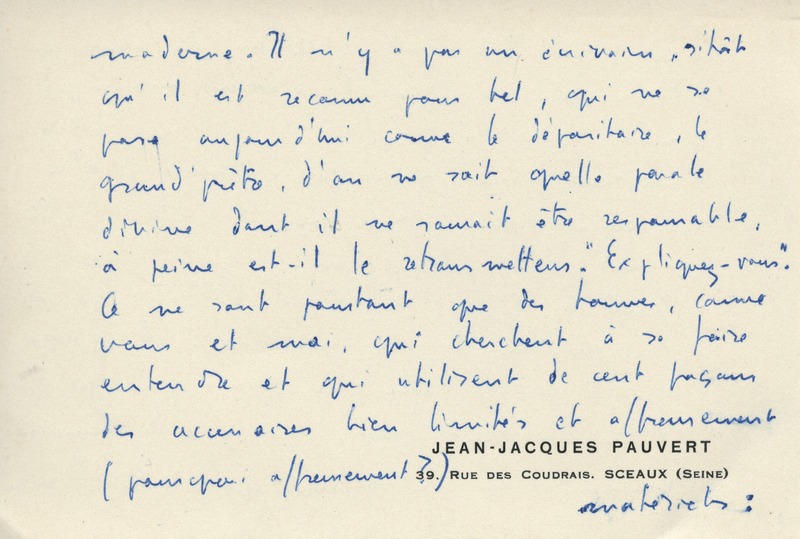 moderne. Il n'y a pas un écrivain, sitôt
qu'il est reconnu pour tel, qui ne se
pose aujourd'hui comme le dépositaire, le
grand'prêtre, d'on ne sait quelle parole
divine dont il ne saurait être responsable,
à peine est-il le retransmetteur. "Expliquez-vous".
Ce ne sont pourtant que des hommes, comme
vous et moi, qui cherchent à se faire
entendre et qui utilisent de cent façons
des accessoires bien limités et affreusement
JEAN-JACQUES PAUVERT
(pourquoi affreusement?)
39, RUE DES COUDRAIS. SCEAUX (SEINE)
matériels :